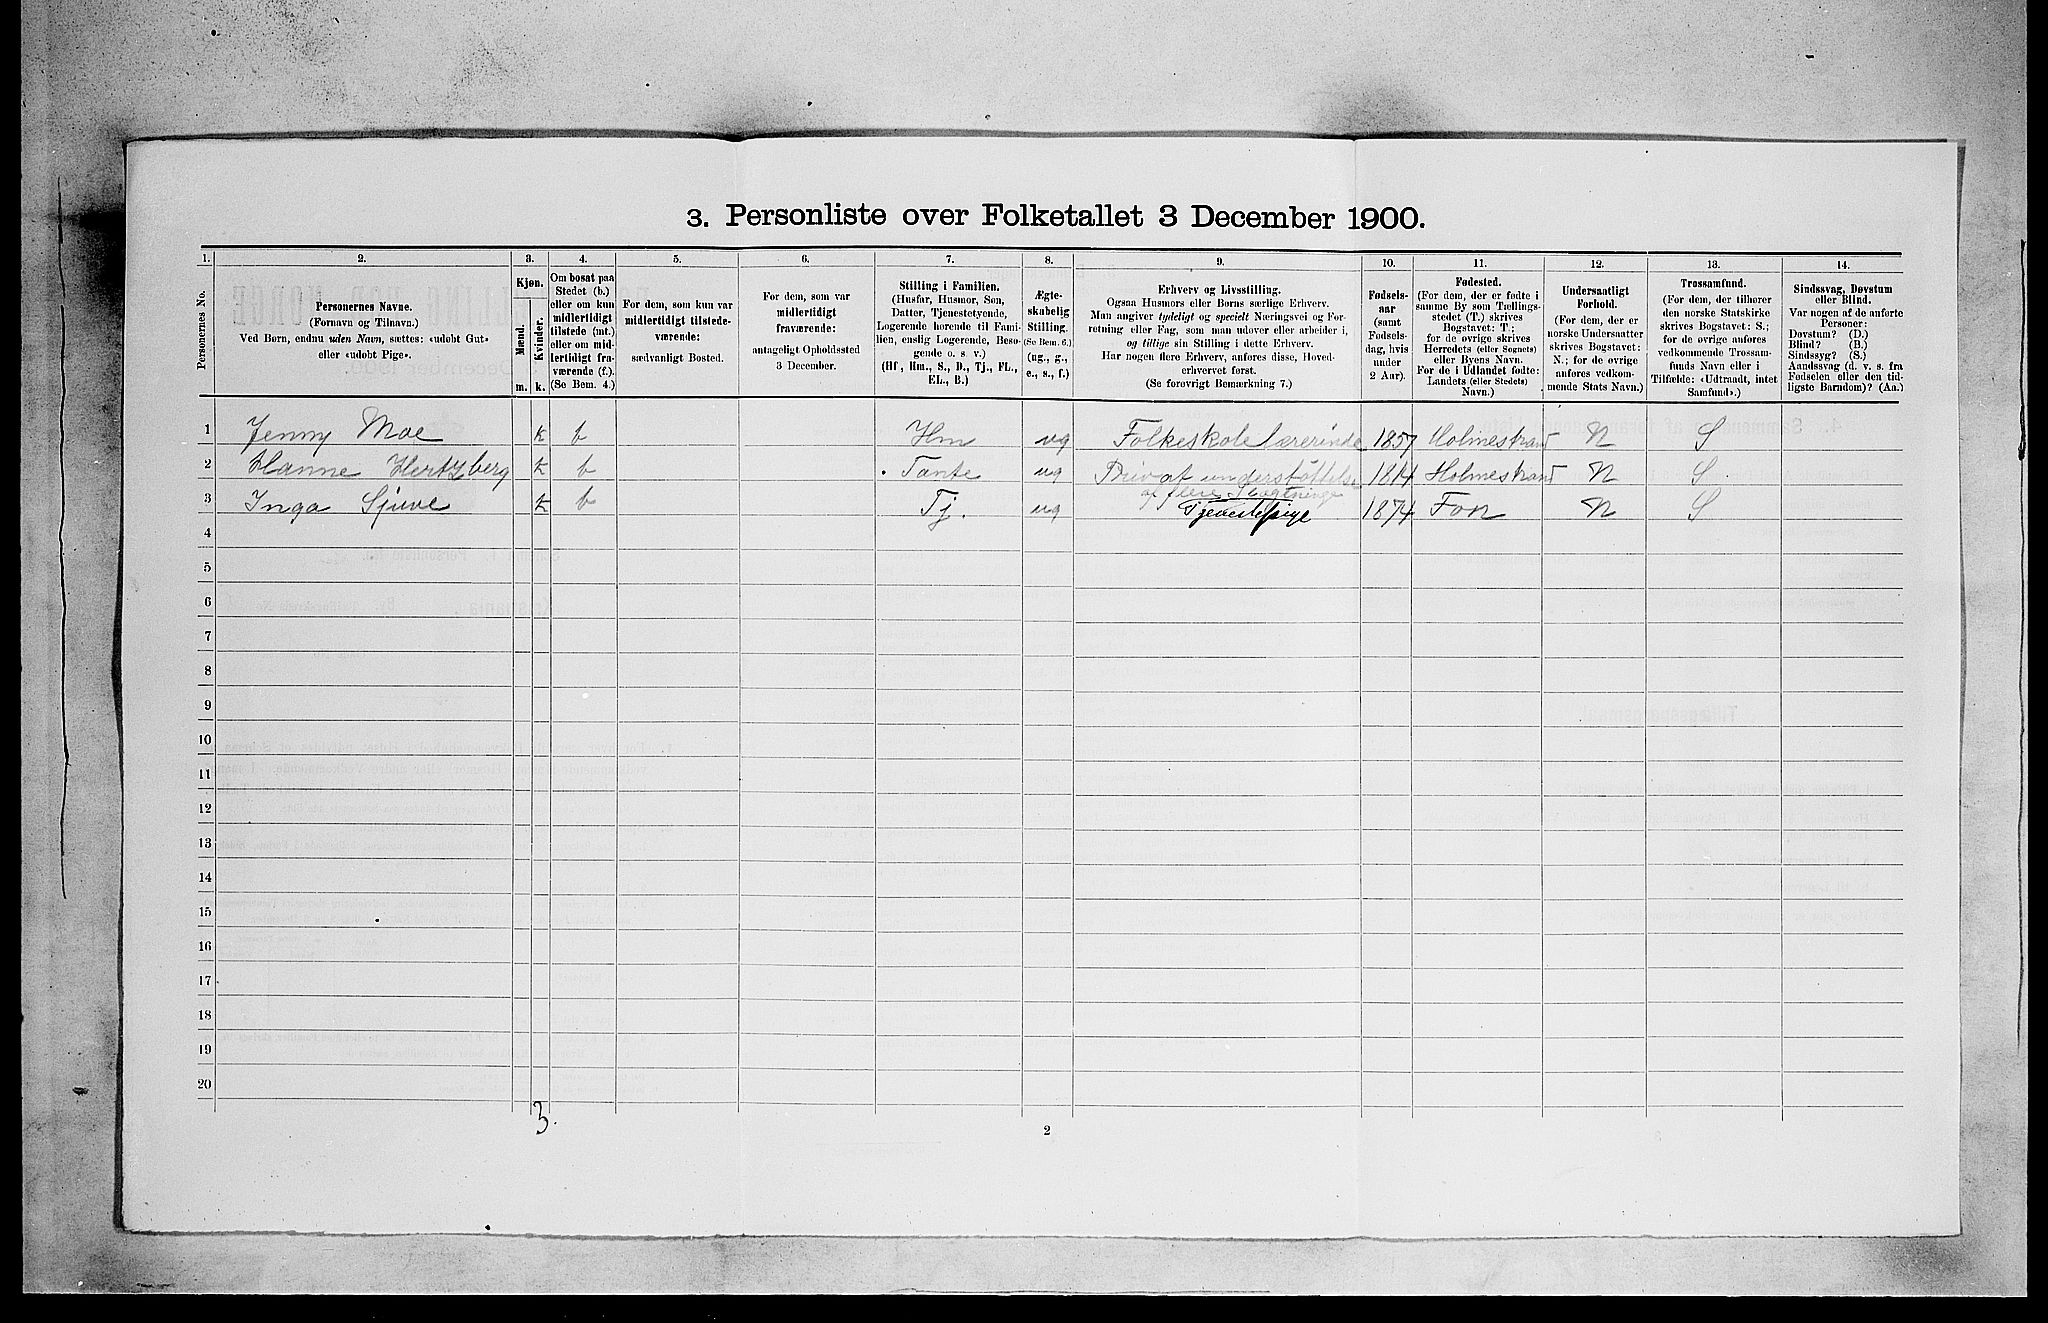 3. Personliste over Folketallet 3 December 1900.
1. 2. 3. 4. 5. 6. 7. 8. 9. 10. 11. 12. 13. 14.
Personernes No.
Personernes Navne.
(Fornavn og Tilnavn.)
Ved Børn, endnu uden Navn, sættes: «udøbt Gut»
eller «udøbt Pige».
Kjøn.
Mænd.
Kvinder.
m. k.
Om bosat paa
Stedet (b.)
eller om kun
midlertidigt
tilstede (mt.)
eller om mid-
lertidigt fra-
værende (f.).
(Se Bem. 4.)
For dem, som kun var
midlertidigt tilstede-
værende:
sædvanligt Bosted.
For dem, som var
midlertidigt
fraværende:
antageligt Opholdssted
3 December.
Stilling i Familien.
(Husfar, Husmor, Søn,
Datter, Tjenestetyende,
Logerende hørende til Fami-
lien, enslig Logerende, Besø-
gende o. s. v.)
(Hf, Hm., S., D., Tj., FL.,
EL., B.)
Ægte-
skabelig
Stilling.
(Se Bem. 6.)
(ug., g.,
e., s., f.)
Erhverv og Livsstilling.
Ogsaa Husmors eller Børns særlige Erhverv.
Man angiver tydeligt og specielt Næringsvei og For-
retning eller Fag, som man udøver eller arbeider i,
og tillige sin Stilling i dette Erhverv.
Har nogen flere Erhverv, anføres disse, Hoved-
erhvervet først.
(Se forøvrigt Bemærkning 7.)
Fødsels-
aar
(samt
Fødsels-
dag, hvis
under
2 Aar).
Fødested.
(For dem, der er fødte i
samme By som Tællings-
stedet (T.) skrives
Bogstavet: T.;
for de øvrige skrives
Herredets (eller Sognets)
eller Byens Navn.
For de i Udlandet fødte:
Landets (eller Stedets)
Navn.)
Undersaatligt
Forhold.
(For dem, der er
norske Undersaatter
skrives Bogstavet:
N.; for de øvrige
anføres vedkom-
mende Stats Navn.)
Trossamfund.
(For dem, der tilhører
den norske Statskirke
skrives Bogstavet: S.;
for de øvrige anføres
vedkommende Trossam-
funds Navn eller i
Tilfælde: «Udtraadt, intet
Samfund».)
Sindssvag, Døvstum
eller Blind.
Var nogen af de anførte
Personer:
Døvstum? (D.)
Blind? (B.)
Sindssyg? (S.)
Aandssvag (d. v. s. fra
Fødselen eller den tid-
ligste Barndom)? (Aa.)
1 Jenny Moe k b Hm ug Folkeskolelærerinde 1857 Holmestrand N S
2 Hanne Hertzberg k b Tante ug Privat understøttelse 1814 Holmestrand N S
af flere Slægtninge
3 Inga Sjuve k b Tj. ug Tjenestepige 1874 Fon N S
4
5
6
7
8
9
10
11
12
13
14
15
16
17
18
19
20
3.
2